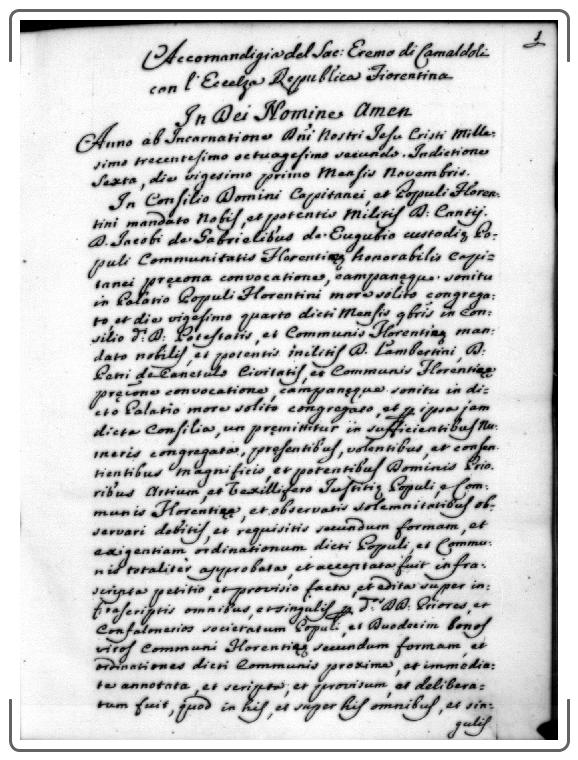 1
Accomandigia del Sac: Eremo di Camaldoli
con l'Eccelza Republica Fiorentina
In Dei Nomine Amen
Anno ab Incarnatione Dñi Nostri Jesu Cristi Mille-
simo trecentesimo octuagesimo secundo. Indictione
Sexta, die vigesimo primo Mensis Novembris.
In Consilio Domini Capitanei, et Populi Floren-
tini mandato Nobis, et potentis Militis D: Cantis.
D. Jacobi de Gabrielibus de Eugubio custodis Po-
puli Communitatis Florentię honorabilis Capi-
tanei pręcona convocatione, campanęque sonitu
in Palatio Populi Florentini more solito congrega-
to, et die vigesimo quarto dicti Mensis 9bris in Con-
silio d: D: Potestatis, et Communis Florentię man-
dato nobilis, et potentis militis D. Lambertini, D:
Petri de Civitatis, et Communis Florentię
pręcone convocatione, campanęque sonitu in di-
cto Palatio more solito congregato, et p ipsa jam
dicta Consilia, ut pręmititur in sufficientibus Nu-
meris congregata, presentibus, volentibus, et consen-
tientibus magnificis et potentibus Dominis Prio-
ribus Artium, et Vexillifero Justitię Populi, e Com-
munis Florentię, et observatis solemnitatibus ob-
servari debitis, et requisitis secundum formam, et
exigentiam ordinationum dicti Populi, et Commu-
nis totaliter approbata, et acceptata fuit infra-
scripta petitio, et provisio facta, et edita super in-
frascriptis omnibus, et singulis p d: DD: Priores, et
Confalonerios societatum Populi, et Duodecim bonos
viros Communi Florentię secundum formam, et
ordinationes dicti Communis proxime, et immedia-
te annotata, et scripta, et provisum, et delibera-
tum fuit, quod in his, et super his omnibus, et sin-
gulis